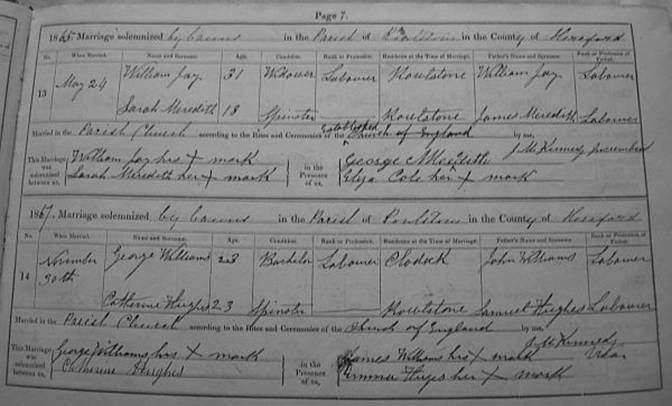 Page 7.
1865. Marriage solemnized by banns in the Parish of in the County of Hereford
No. When Married. Name and Surname. Age. Condition. Rank or Profession. Residence at the Time of Marriage. Father's Name and Surname. Rank or Profession of Father.
13 May 24 William Jay 31 Widower Labourer Rowlstone William Jay Labourer
Sarah Meredith 18 Spinster Rowlstone James Meredith Labourer
Married in the Parish Church according to the Rites and Ceremonies of the Established Church of England by me,
J McKennedy Incumbent
This Marriage was solemnized between us, William Jay his X mark
Sarah Meredith her X mark
in the Presence of us, George
Eliza Cole her X mark
1867. Marriage solemnized by banns in the Parish of Rowlstone in the County of Hereford
No. When Married. Name and Surname. Age. Condition. Rank or Profession. Residence at the Time of Marriage. Father's Name and Surname. Rank or Profession of Father.
14 November 30th George Williams 23 Bachelor Labourer Clodock John Williams Labourer
Catherine Hughes 23 Spinster Rowlstone Samuel Hughes Labourer
Married in the Parish Church according to the Rites and Ceremonies of the Church of England by me,
J McKennedy Vicar
This Marriage was solemnized between us, George Williams his X mark
Catherine Hughes
in the Presence of us, James Williams his X mark
her X mark